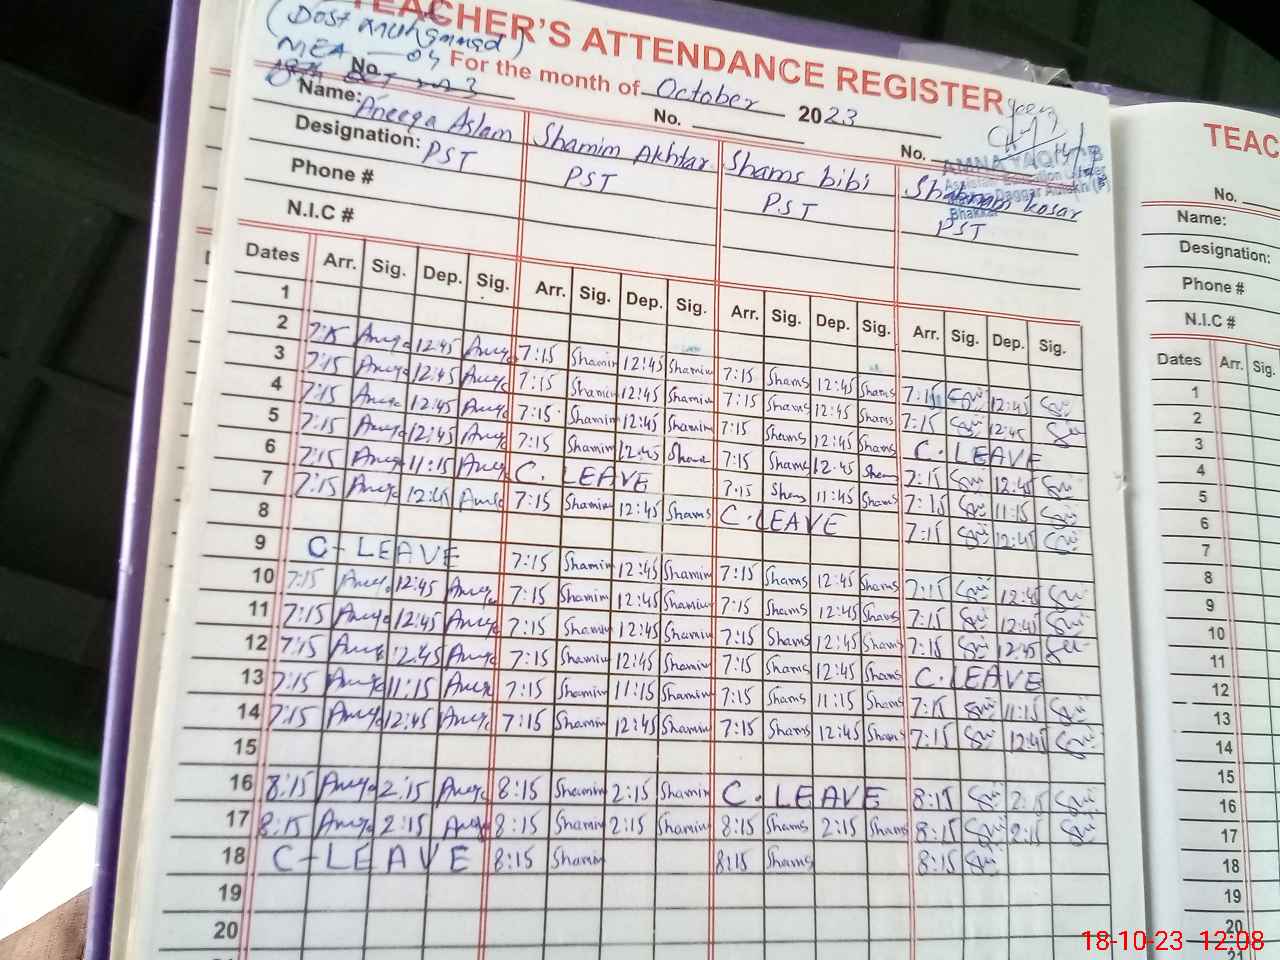 (Dost Muhammad)
TEACHER'S ATTENDANCE REGISTER
MEA 04
For the month of October 2023
No. No. No.
Name: Aneeqa Aslam Shamim Akhtar Shams bibi Shabnam kosar
Designation: PST PST PST PST
Phone #
N.I.C #
Dates Arr. Sig. Dep. Sig. Arr. Sig. Dep. Sig. Arr. Sig. Dep. Sig. Arr. Sig. Dep. Sig.
1
2 7:15 12:45 7:15 Shamim 12:45 Shamim 7:15 Shams 12:45 Shams 7:15 12:45
3 7:15 12:45 7:15 Shamim 12:45 Shamim 7:15 Shams 12:45 Shams 7:15 12:45
4 7:15 12:45 7:15 Shamim 12:45 Shamim 7:15 Shams 12:45 Shams C. LEAVE
5 7:15 12:45 7:15 Shamim 12:45 7:15 Shams 12:45 Sham 7:15 12:45
6 7:15 11:15 C. LEAVE 7:15 Shams 11:45 Shams 7:15 11:15
7 7:15 12:45 7:15 Shamim 12:45 Shams C. LEAVE 7:15 12:45
8
9 C-LEAVE 7:15 Shamim 12:45 Shamim 7:15 Shams 12:45 Shams 7:15 12:45
10 7:15 12:45 7:15 Shamim 12:45 Shamim 7:15 Shams 12:45 Shams 7:15 12:45
11 7:15 12:45 7:15 Shamim 12:45 Shamim 7:15 Shams 12:45 Shams 7:15 12:45
12 7:15 12:45 7:15 Shamim 12:45 Shamim 7:15 Shams 12:45 Shams C. LEAVE
13 7:15 11:15 7:15 Shamim 11:15 Shamim 7:15 Shams 11:15 Shams 7:15 11:15
14 7:15 12:45 7:15 Shamim 12:45 Shamim 7:15 Shams 12:45 Shams 7:15 12:45
15
16 8:15 2:15 8:15 Shamim 2:15 Shamim C. LEAVE 8:15 2:15
17 8:15 2:15 8:15 Shamim 2:15 Shamim 8:15 Shams 2:15 Shams 8:15 2:15
18 C-LEAVE 8:15 Shamim 8:15 Shams 8:15
19
20
AMNA YAQ
Bhakkar
TEAC
No.
Name:
Designation:
Phone #
N.I.C #
Dates Arr. Sig.
1
2
3
4
5
6
7
8
9
10
11
12
13
14
15
16
17
18
19
20
21
18-10-23 12:08